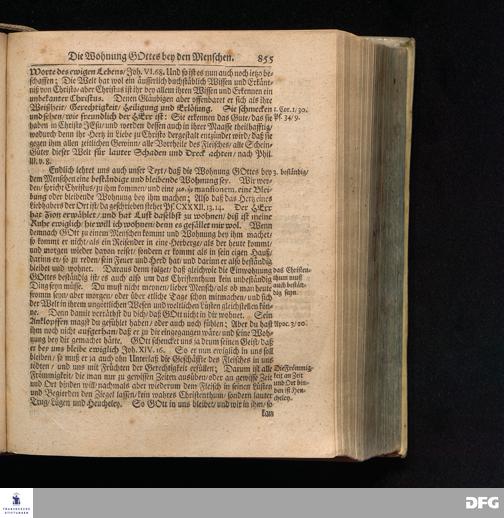 Die Wohnung GOttes bey den Menschen. 855
Worte des ewigen Lebens/ Joh. VI. 68. Und so ist es nun auch noch ietzo be-
schaffen; Die Welt hat wol ein äusserlich buchstäblich Wissen und Erkänt-
niß von Christo/ aber Christus ist ihr bey allem ihren Wissen und Erkennen ein
unbekanter Christus. Denen Gläubigen aber offenbaret er sich als ihre
Weißheit/ Gerechtigkeit/ Heiligung und Erlösung. Sie schmecken
1. Cor. 1/ 30.
und sehen/ wie freundlich der HErr ist: Sie erkennen das Gute/ das sie
Ps. 34/ 9.
haben in Christo JEsu/ und werden dessen auch in ihrer Maasse theilhafftig/
wodurch denn ihr Hertz in Liebe zu Christo dergestalt entzündet wird/ daß sie
gegen ihm allen zeitlichen Gewinn/ alle Vortheile des Fleisches/ alle Schein-
Güter dieser Welt für lauter Schaden und Dreck achten/ nach Phil.
III. v. 8.
Endlich lehret uns auch unser Text/ daß die Wohnung GOttes bey
3. beständig/
dem Menschen eine beständige und bleibende Wohnung sey. Wir wer-
den/ spricht Christus/ zu ihm kommen/ und eine mansionem, eine Blei-
bung oder bleibende Wohnung bey ihm machen; Also daß das Hertz eines
Liebhabers der Ort ist/ da geschrieben stehet Ps. CXXXII. 13. 14. Der HErr
hat Zion erwählet/ und hat Lust daselbst zu wohnen/ diß ist meine
Ruhe ewiglich/ hie will ich wohnen/ denn es gefället mir wol. Wenn
demnach GOtt zu einem Menschen kommt und Wohnung bey ihm machet/
so kommt er nicht/ als ein Reisender in eine Herberge/ als der heute kommt/
und morgen wieder davon reiset/ sondern er kommt als in sein eigen Hauß/
darinn er/ so zu reden/ sein Feuer und Herd hat/ und darinn er also beständig
bleibet und wohnet. Daraus denn folget/ daß gleichwie die Einwohnung
das Christen-
GOttes beständig ist/ es auch also um das Christenthum kein unbeständig
thum muß
Ding seyn müsse. Du must nicht meynen/ lieber Mensch/ als ob man heute
auch bestän-
fromm seyn/ aber morgen/ oder über etliche Tage schon mitmachen/ und sich
dig seyn.
der Welt in ihrem ungöttlichen Wesen und weltlichen Lüsten gleichstellen kön-
ne. Denn damit verräthst du dich/ daß GOtt nicht in dir wohnet. Sein
Anklopffen magst du gefühlet haben/ oder auch noch fühlen; Aber du hast
Apoc. 3/ 20.
ihm noch nicht aufgethan/ daß er zu dir eingegangen wäre/ und seine Woh-
nung bey dir gemachet hätte. GOtt schencket uns ja drum seinen Geist/ daß
er bey uns bleibe ewiglich Joh. XIV. 16. So er nun ewiglich in uns soll
bleiben/ so muß er ja auch ohn Unterlaß die Geschäffte des Fleisches in uns
tödten/ und uns mit Früchten der Gerechtigkeit erfüllen; Darum ist alle
Die Frömmig-
Frömmigkeit/ die man nur zu gewissen Zeiten ausüben/ oder an gewisse Zeit
keit an Zeit
und Ort binden will/ nachmals aber wiederum dem Fleisch in seinen Lüsten
und Ort bin-
und Begierden den Ziegel lassen/ kein wahres Christenthum/ sondern lauter
den ist Heu-
Trug/ Lügen und Heucheley. So GOtt in uns bleibet/ und wir in ihm/ so
cheley.
kan
FRANCKESCHE
STIFTUNGEN
DFG